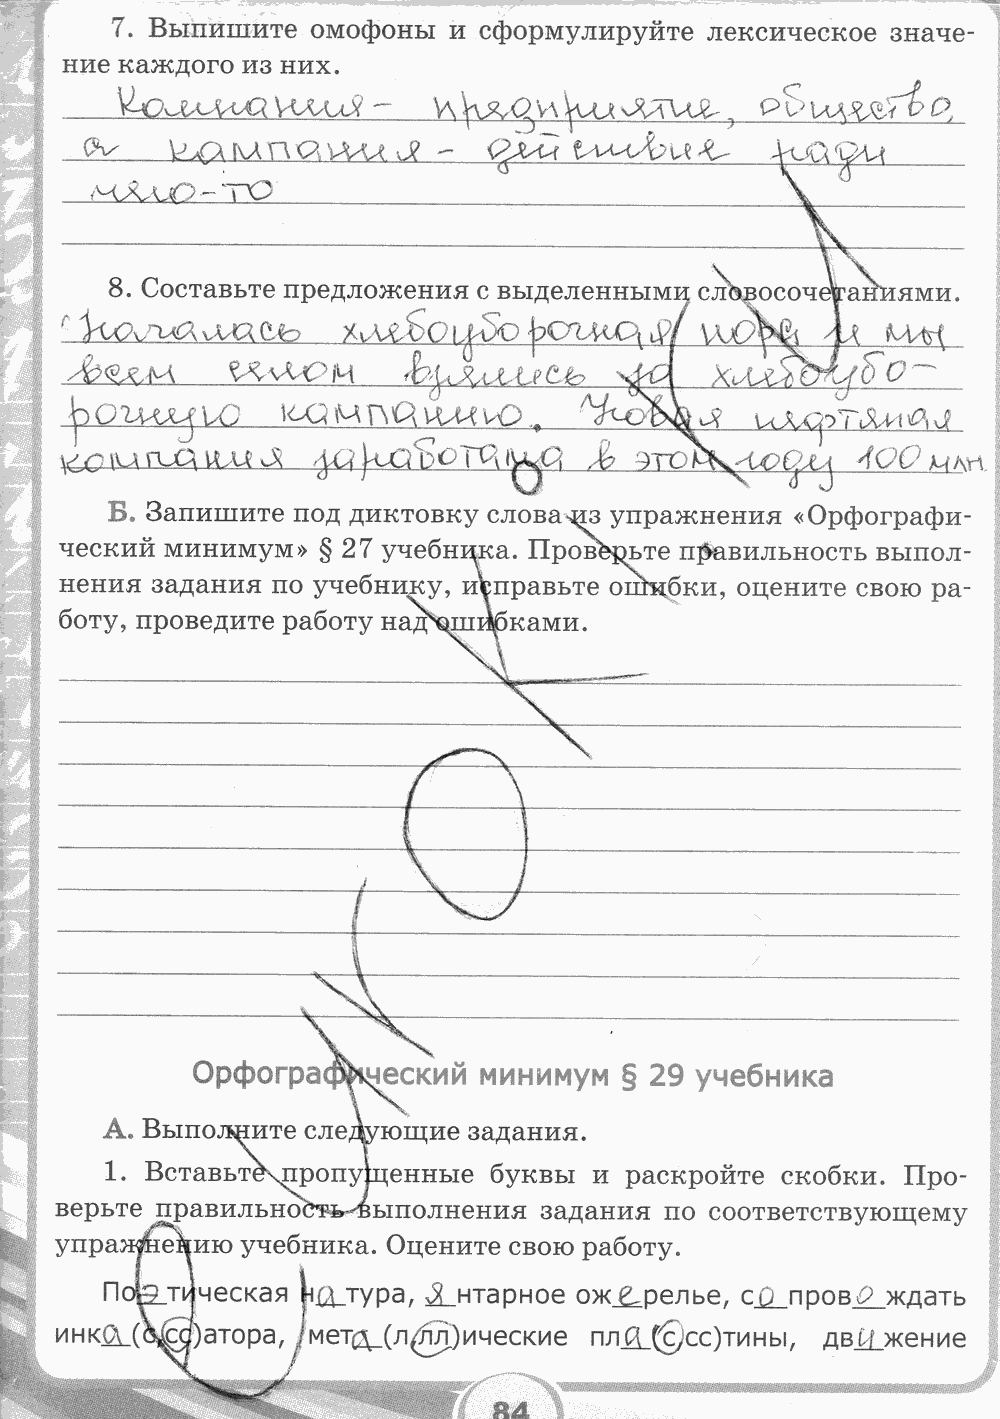 7. Выпишите омофоны и сформулируйте лексическое значе-
ние каждого из них.
Компания - предприятие, общество,
а кампания - действия ради
чего-то
8. Составьте предложения с выделенными словосочетаниями.
Началась хлебоуборочная пора и мы
всем селом взялись за хлебоубо-
рочную кампанию. Новая нефтяная
компания заработала в этом году 100 млн.
Б. Запишите под диктовку слова из упражнения «Орфографи-
ческий минимум» § 27 учебника. Проверьте правильность выпол-
нения задания по учебнику, исправьте ошибки, оцените свою ра-
боту, проведите работу над ошибками.
Орфографический минимум § 29 учебника
А. Выполните следующие задания.
1. Вставьте пропущенные буквы и раскройте скобки. Про-
верьте правильность выполнения задания по соответствующему
упражнению учебника. Оцените свою работу.
Поэтическая натура, янтарное ожерелье, сопровождать
инка(с,сс)атора, мета(л,лл)ические пла(с,сс)тины, движение
84